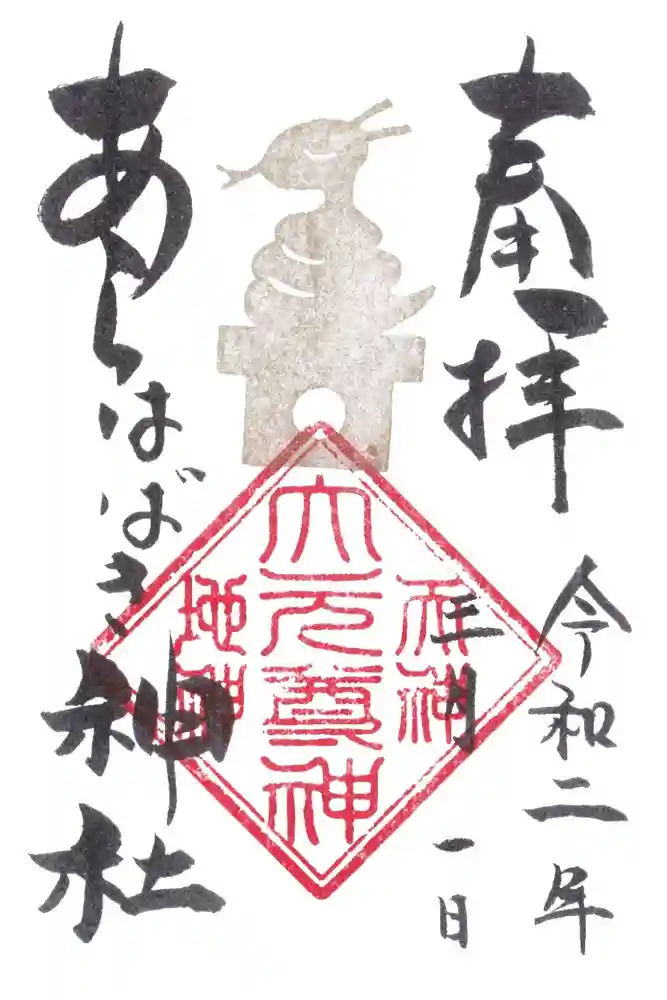 奉拝
令和二年
三月
一日
天神
大元尊神
地神
あらはばき神社